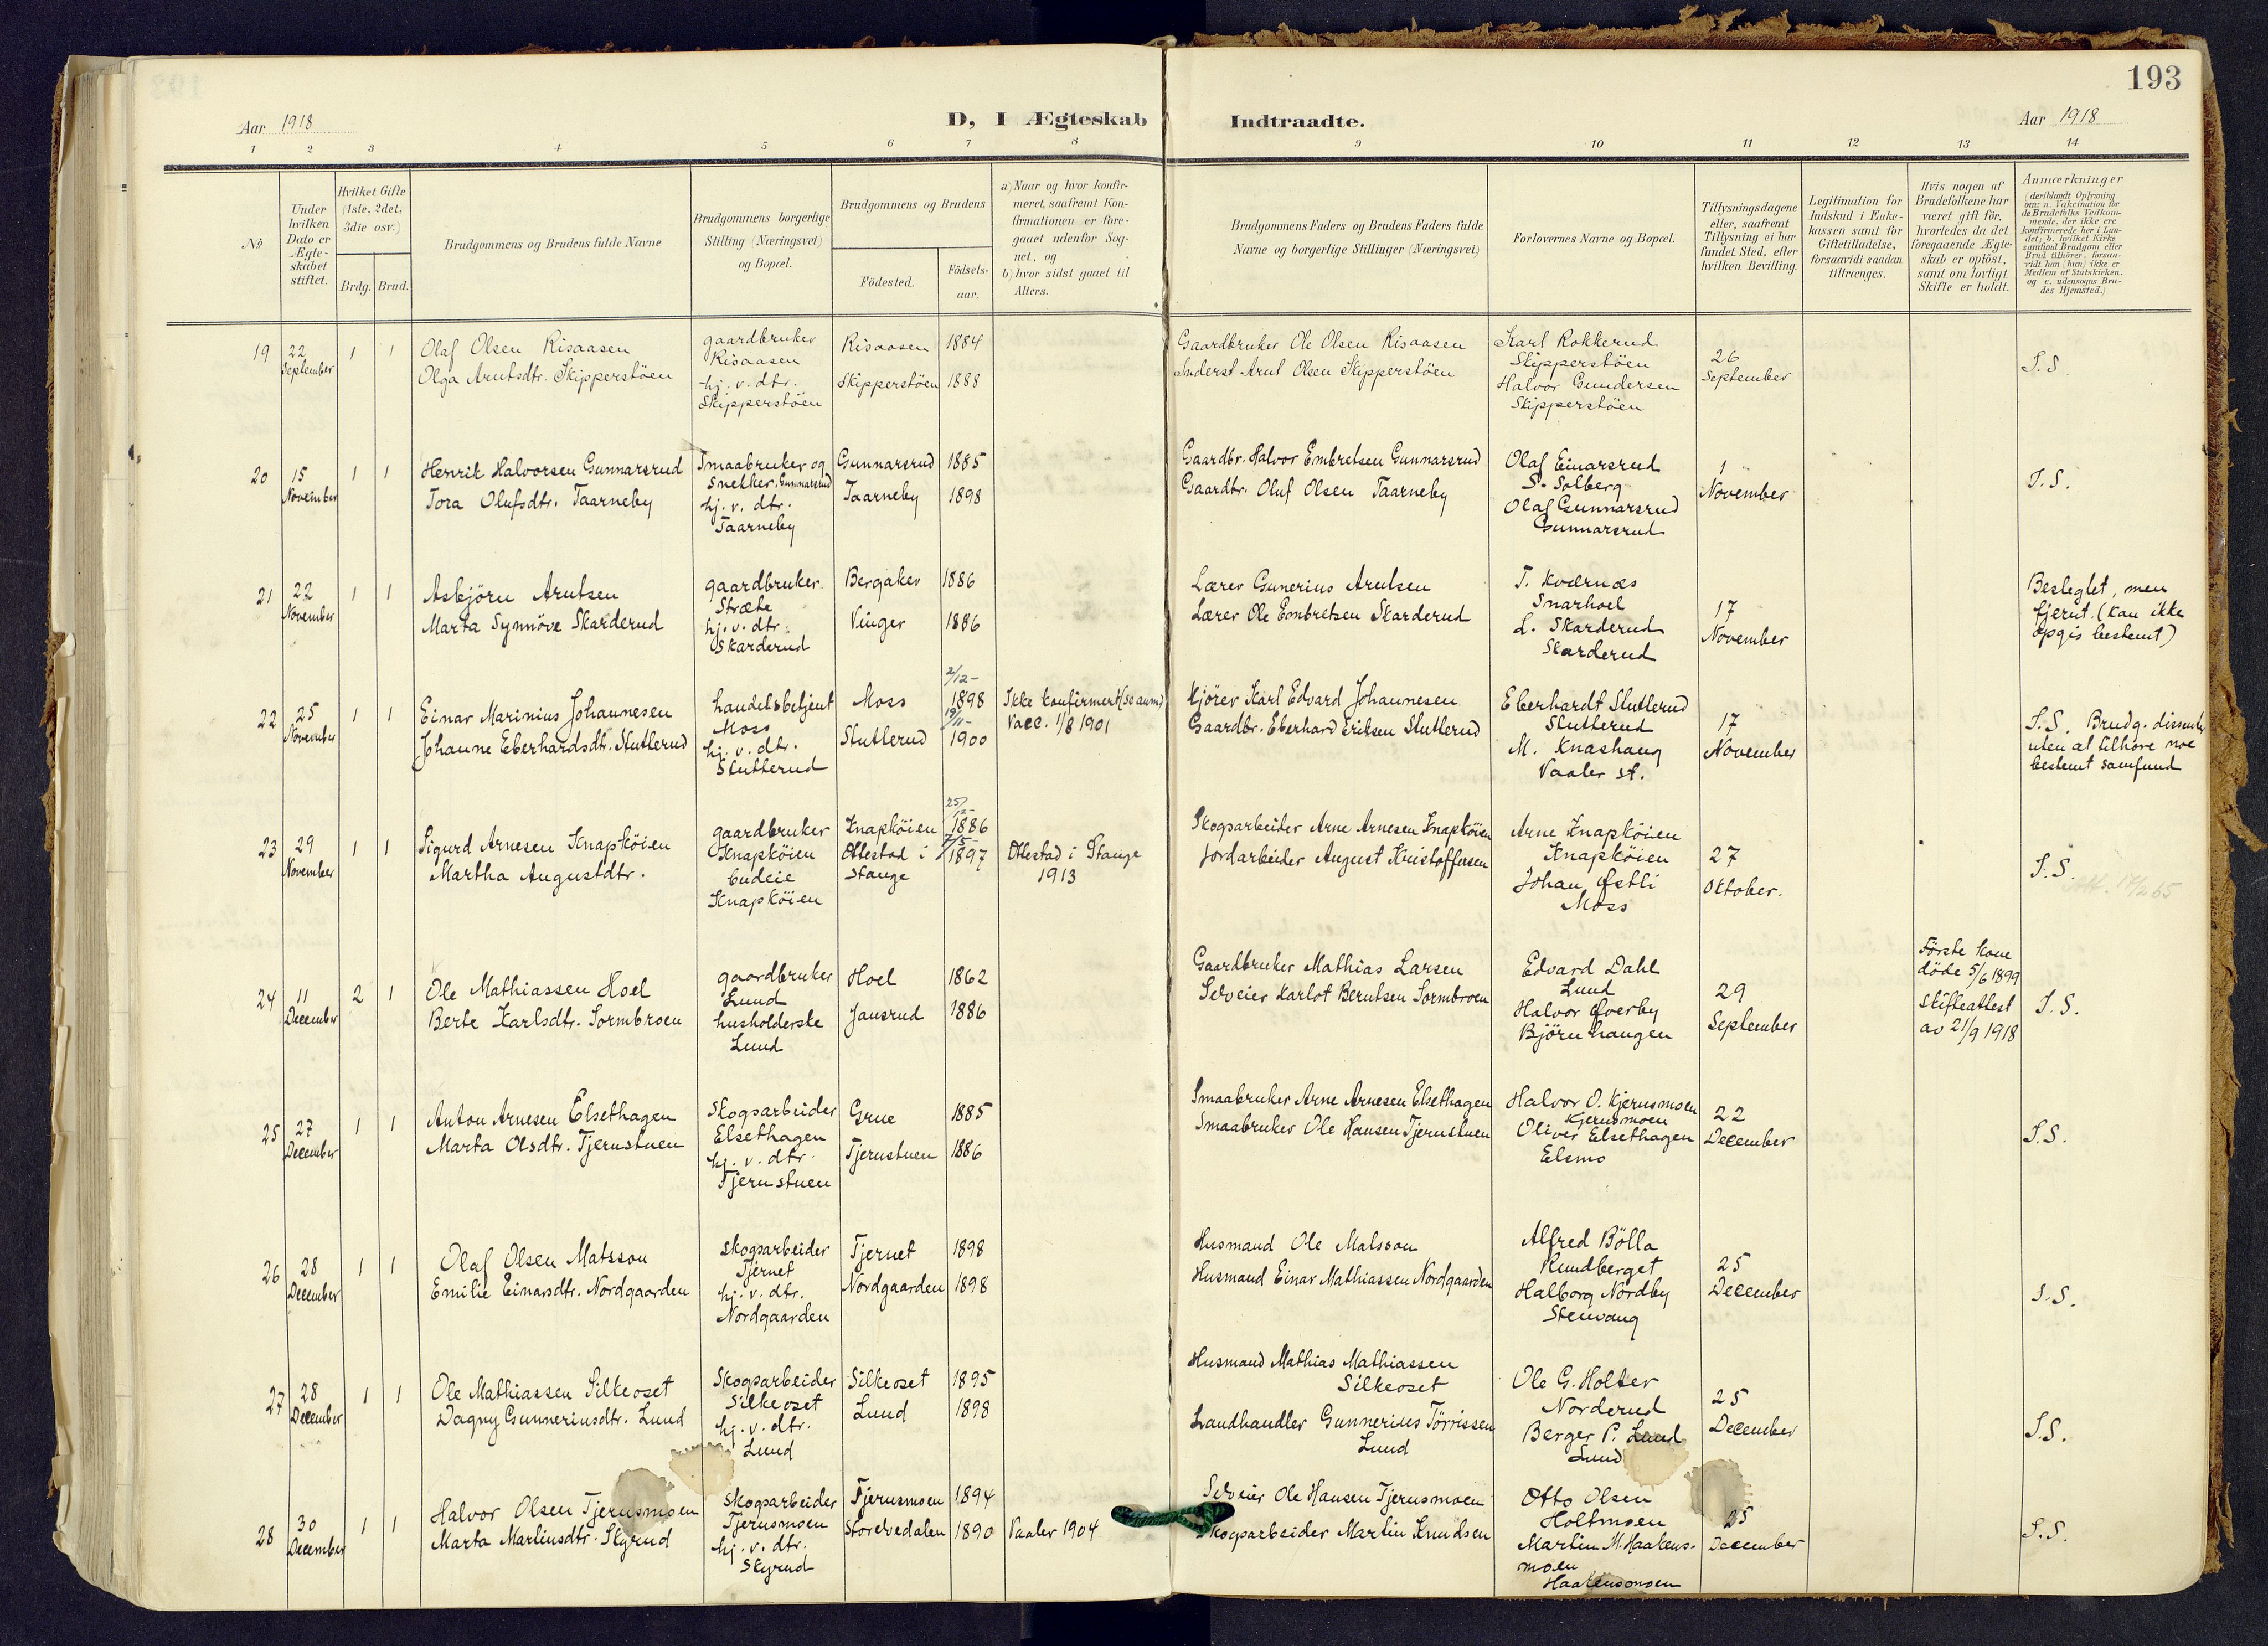 193
Aar 1918
D, I Ægteskab Indtraadte.
Aar 1918
1 2 3 4 5 6 7 8 9 10 11 12 13 14
No
Under hvilken Dato er Ægteskabet stiftet.
Hvilket Gifte (1ste, 2det, 3die osv.)
Brdg. Brud.
Brudgommens og Brudens fulde Navne
Brudgommens borgerlige Stilling (Næringsvei) og Bopæl.
Brudgommens og Brudens
Fødested.
Fødselsaar.
a) Naar og hvor konfirmeret, saafremt Konfirmationen er foregaaet udenfor Sognet, og
b) hvor sidst gaaet til Alters.
Brudgommens Faders og Brudens Faders fulde Navne og borgerlige Stillinger (Næringsvei)
Forlovernes Navne og Bopæl.
Tillysningsdagene eller, saafremt Tillysning ei har fundet Sted, efter hvilken Bevilling.
Legitimation for Indskud i Enkekassen samt for Giftetilladelse, forsaavidt saadan tiltrænges.
Hvis nogen af Brudefolkene har været gift før, hvorledes da det foregaaende Ægteskab er opløst, samt om lovligt Skifte er holdt.
Anmærkninger (deriblandt Oplysning om: a. Vakcination for de Brudefolks Vedkommende, der ikke ere konfirmerede her i Landet; b. hvilket Kirkesamfund Brudgom eller Brud tilhører, forsaavidt han (hun) ikke er Medlem af Statskirken, og c. udensogns Brudes Hjemsted.)
19
22 September
1 1
Olaf Olsen Risaasen
Olga Arntsdtr. Skipperstöen
gaardbruker
Risaasen
hj. v. dtr.
Skipperstöen
Risaasen 1884
Skipperstöen 1888
Gaardbruker Ole Olsen Risaasen
Inderst Arnt Olsen Skipperstöen
Karl Rokkerud
Skipperstöen
Halvor Gundersen
Skipperstöen
26
September
S.S.
20
15 November
1 1
Henrik Halvorsen Gunnarsrud
Tora Olufsdtr. Taarneby
Smaabruker og
Snekker, Gunnarsrud
hj. v. dtr.
Taarneby
Gunnarsrud 1885
Taarneby 1898
Gaardbr. Halvor Embretsen Gunnarsrud
Gaardbr. Oluf Olsen Taarneby
Olaf Einarsrud
S. Solberg
Olaf Gunnarsrud
Gunnarsrud
1
November
S.S.
21
22 November
1 1
Asbjörn Arntsen
Marta Synnöve Skarderud
gaardbruker
Stræte
hj. v. dtr.
Skarderud
Bergaker 1886
Vinger 1886
Lærer Gunerius Arntsen
Lærer Ole Embretsen Skarderud
T. Kværnæs
Snarhoel
L. Skarderud
Skarderud
17
November
Beslegtet, men
fjernt. (kan ikke
opgis bestemt)
22
25 November
1 1
Einar Marinius Johannesen
Johanne Eberhardsdtr. Stutlerud
handelsbetjent
Moss
hj. v. dtr.
Stutlerud
Moss 2/12- 1898
Stutlerud 19/11- 1900
Ikke konfirmert (se anm)
Vacc. 1/8 1901
Kjörer Karl Edvard Johannesen
Gaardbr. Eberhard Eriksen Stutlerud
Eberhardt Stutlerud
Stutlerud
M. Knashaug
Vaaler st.
17
November
S.S. Brudg. dissenter
uten at tilhöre noe
bestemt samfund
23
29 November
1 1
Sigurd Arnesen Knapköien
Martha Augustdtr.
gaardbruker
Knapköien
budeie
Knapköien
Knapköien 25/12- 1886
Ottestad i Stange 7/5- 1897
Ottestad i Stange
1913
Skogsarbeider Arne Arnesen Knapköien
Jordarbeider August Kristoffersen
Arne Knapköien
Knapköien
Johan Østli
Moss
27
Oktober.
S.S.
24
11 December
2 1
Ole Mathiassen Hoel
Berte Karlsdtr. Sormbroen
gaardbruker
Lund
husholderske
Lund
Hoel 1862
Jansrud 1886
Gaardbruker Mathias Larsen
Selveier Karlot Berntsen Sormbroen
Edvard Dahl
Lund
Halvor Øverby
Björnhaugen
29
September
Förste kone
döde 5/6 1899
Skifteattest
av 21/9 1918
S.S.
25
27 December
1 1
Anton Arnesen Elsethagen
Marta Olsdtr. Tjernstuen
Skogsarbeider
Elsethagen
hj. v. dtr.
Tjernstuen
Grue 1885
Tjernstuen 1886
Smaabruker Arne Arnesen Elsethagen
Smaabruker Ole Hansen Tjernstuen
Halvor O. Kjernsmoen
Kjernsmoen
Oliver Elsethagen
Elsmo
22
December
S.S.
26
28 December
1 1
Olaf Olsen Matsson
Emilie Einarsdtr. Nordgaarden
Skogsarbeider
Tjernet
hj. v. dtr.
Nordgaarden
Tjernet 1898
Nordgaarden 1898
Husmand Ole Matsson
Husmand Einar Mathiassen Nordgaarden
Alfred Bölla
Rundberget
Halborg Nordby
Stenvang
25
December
S.S.
27
28 December
1 1
Ole Mathiassen Silkeoset
Dagny Gunneriusdtr. Lund
Skogsarbeider
Silkeoset
hj. v. dtr.
Lund
Silkeoset 1895
Lund 1898
Husmand Mathias Mathiassen
Silkeoset
Landhandler Gunnerius Törrissen
Lund
Ole G. Holter
Norderud
Berger P. Lund
Lund
25
December
S.S.
28
30 December
1 1
Halvor Olsen Tjernsmoen
Marta Martinsdtr. Skyrud
Skogsarbeider
Tjernsmoen
hj. v. dtr.
Skyrud
Tjernsmoen 1894
Storelvedalen 1890
Vaaler 1904
Selveier Ole Hansen Tjernsmoen
Skogsarbeider Martin Knudsen
Otto Olsen
Holtmoen
Martin M. Haakens-
moen
Haakensmoen
25
December
S.S.